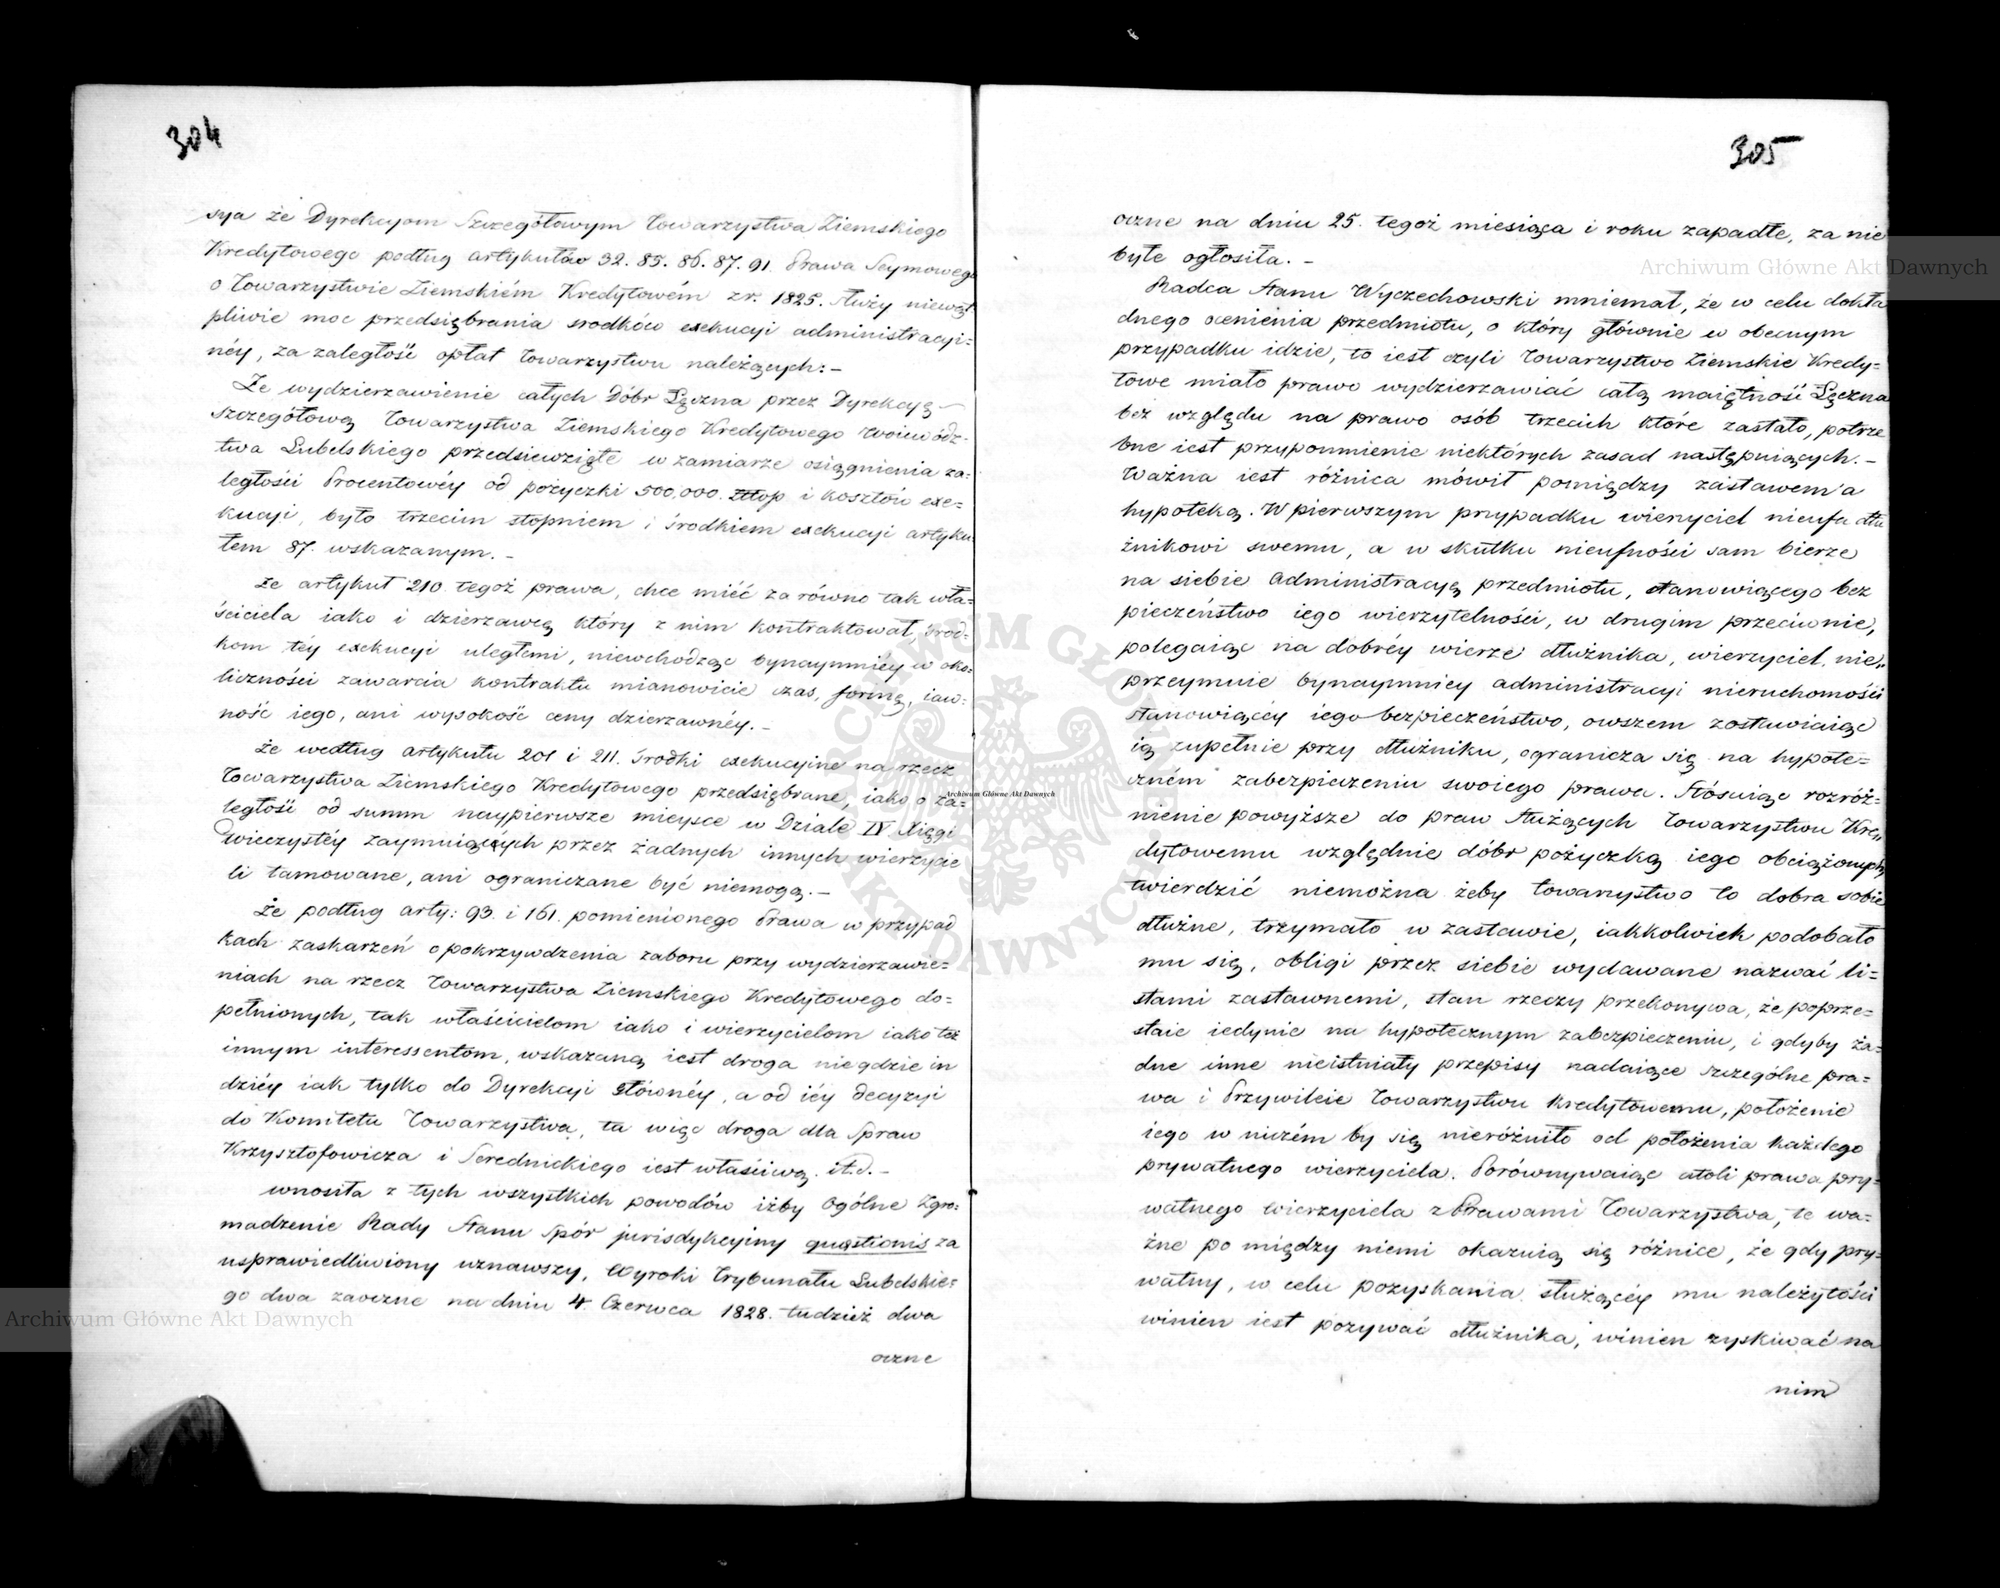 304
sya że Dyrekcyom Szczegółowym Towarzystwa Ziemskiego
Kredytowego podług artykułów 32. 85. 86. 87. 91. Prawa Seymowego
o Towarzystwie Ziemskiém Kredytowém z r. 1825. służy niewąt
pliwie moc przedsiębrania srodków exekucyi administracyi=
néy, za zaległość opłat Towarzystwu należących: –
Że wydzierzawienie całych Dóbr Łęczna przez Dyrekcyą
Szczegółową Towarzystwa Ziemskiego Kredytowego Woiewódz=
twa Lubelskiego przedsiewzięte w zamiarze osiągnienia za=
ległości Procentowéy od pożyczki 500,000. złłop i kosztów exe=
kucyi, było trzecim stopniem i środkiem exekucyi artyku
łem 87. wskazanym. –
Że artykuł 210. tegoż prawa, chce mieć zarówno tak wła=
ściciela iako i dzierzawcę który z nim kontraktował, środ=
kom téy exekucyi uległemi, niewchodząc bynaymniéy w oko=
liczności zawarcia kontraktu mianowicie czas, formę, iaw=
ność iego, ani wysokość ceny dzierzawnéy. –
Że według artykułu 201 i 211. środki exekucyine na rzecz
Towarzystwa Ziemskiego Kredytowego przedsiębrane, iako o za=
ległość od summ naypierwsze mieysce w Dziale IV Xięgi
wieczystéy zaymuiących przez żadnych innych wierzycie
li tamowane, ani ograniczane być niemogą. –
Że podług arty: 93. i 161. pomienionego Prawa w przypad
kach zaskarzeń o pokrzywdzenia zaboru przy wydzierzawie=
niach na rzecz Towarzystwa Ziemskiego Kredytowego do=
pełnionych, tak właścicielom iako i wierzycielom iako też
innym interessentom, wskazaną iest droga nie gdzie in
dziéy iak tylko do Dyrekcyi Głównéy, a od iéy decyzyi
do Komitetu Towarzystwa, ta więc droga dla Spraw
Krzysztofowicza i Serednickiego iest właściwą. it.d. –
wnosiła z tych wszystkich powodów iżby Ogólne Zgro=
madzenie Rady Stanu Spór jurisdykcyiny quæstionis za
usprawiedliwiony uznawszy, Wyroki Trybunału Lubelskie=
go dwa zaoczne na dniu 4 Czerwca 1828. tudzież dwa
oczne
305
oczne na dniu 25. tegoż miesiąca i roku zapadłe, za nie
byłe ogłosiła. –
Radca Stanu Wyczechowski mniemał, że w celu dokła
dnego ocenienia przedmiotu, o który głównie w obecnym
przypadku idzie, to iest czyli Towarzystwo Ziemskie Kredy=
towe miało prawo wydzierzawiać całą maiętność Łęczna
bez względu na prawo osób trzecich które zastało, potrze
bne iest przypomnienie niektórych zasad następuiących. –
Ważna iest różnica mówił pomiędzy zastawem a
hypoteką. W pierwszym przypadku wierzyciel nieufa dłu
żnikowi swemu, a w skutku nieufności sam bierze
na siebie administracyą przedmiotu, stanowiącego bez
pieczeństwo iego wierzytelności, w drugim przeciwnie,
polegaiąc na dobréy wierze dłużnika, wierzyciel nie„
przeymuie bynaymniey administracyi nieruchomości
stanowiącéy iego bezpieczeństwo, owszem zostawiaiąc
ią zupełnie przy dłużniku, ogranicza się na hypote=
czném zabezpieczeniu swoiego prawa. Stósuiąc rozróż=
nienie powyższe do praw służących Towarzystwu Kre„
dytowemu względnie dóbr pożyczką iego obciążonych,
twierdzić niemożna żeby towarzystwo to dobra sobie
dłużne, trzymało w zastawie, iakkolwiek podobało
mu się, obligi przez siebie wydawane nazwać li=
stami zastawnemi, stan rzeczy przekonywa, że poprze=
staie iedynie na hypotecznym zabezpieczeniu, i gdyby ża=
dne inne nieistniały przepisy nadaiące szczególne pra=
wa i Przywileie Towarzystwu Kredytowemu, położenie
iego w niczém by się nieróżniło od położenia każdego
prywatnego wierzyciela. Porównywaiąc atoli prawa pry=
watnego wierzyciela z Prawami Towarzystwa, te wa=
żne po między niemi okazuią się różnice, że gdy pry=
watny, w celu pozyskania służącéy mu należytości
winien iest pozywać dłużnika, winien zyskiwać na
nim
Archiwum Główne Akt Dawnych
Archiwum Główne Akt Dawnych
Archiwum Główne Akt Dawnych
ARCHIWUM GŁÓWNE AKT DAWNYCH